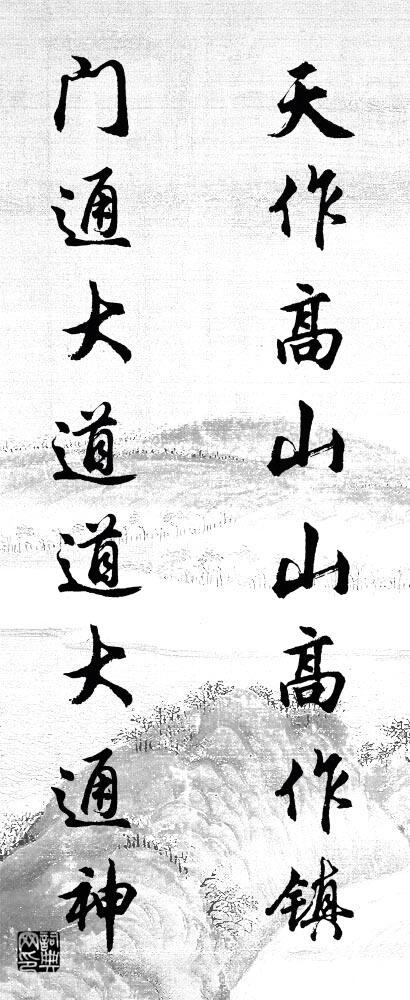 天作高山山高作镇
门通大道道大通神